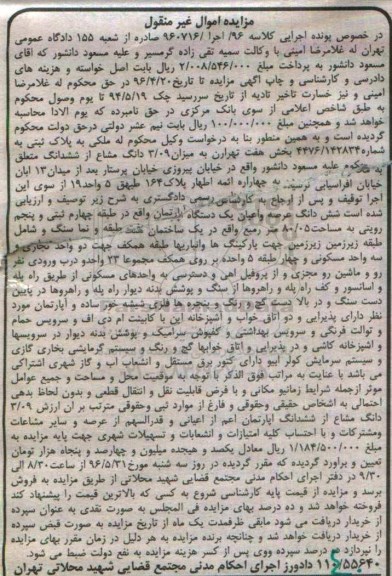 مزایده اموال غیر منقول
در خصوص پونده اجرایی کلاسه ۹۶/ اجرا /۹۶۰۷۱۶ صادره از شعبه ۱۵۵ دادگاه عمومی
تهران له غلامرضا امینی با وکالت سمیه تقی زاده گرمسیر و علیه مسعود دانشور که اقای
مسعود دانشور به پرداخت مبلغ ۲/۰۰۸/۵۴۶/۰۰۰ ریال بابت اصل خواسته و هزینه های
دادرسی و کارشناسی و چاپ آگهی مزایده تا تاریخ ۹۶/۴/۲۰ در حق محکوم له غلامرضا
امینی و نیز خسارت تاخیر تادیه از تاریخ سررسید چک ۹۴/۵/۱۹ تا یوم وصول محکوم
به طبق شاخص اعلامی از سوی بانک مرکزی در حق نامبرده که یوم الادا محاسبه
خواهد شد و همچنین مبلغ ۱۰۰/۰۰۰/۰۰۰ ریال بابت نیم عشر دولتی درحق دولت محکوم
گردیده است و به همین منظور بنا به درخواست وکیل محکوم له ملکی به پلاک ثبتی به
شماره ۴۴۷۶/۱۴۲۸۳۴ بخش هفت تهران به میزان ۳/۰۹ دانگ مشاع از ششدانگ متعلق
به محکوم علیه مسعود دانشور واقع در خیابان پیروزی خیابان پرستار بعد از میدان ۱۳ آبان
خیابان افراسیابی نرسیده به چهارراه ائمه اطهار پلاک ۱۶۴ طبقه ۵ واحد ۱۹ از سوی این
اجرا توقیف و پس از ارجاع به کارشناس رسمی دادگستری به شرح زیر توصیف و ارزیابی
شده است شش دانگ عرصه واعیان یک دستگاه آپارتمان واقع در طبقه چهارم ثبتی و پنجم
رویتی به مساحت ۸۰/۰۵ متر مربع واقع در یک ساختمان هفت طبقه و نما سنگ و شامل
طبقه زیرزمین زیرزمین جهت پارکینگ ها وانباریها طبقه همکف جهت دو واحد تجاری و
سه واحد مسکونی و چهار طبقه ۵ واحده بر روی همکف مجموعا ۲۳ واحدو درب ورودی نفر
رو و ماشین رو مجزی و از پروفیل آهی و دسترسی به واحدهای مسکونی از طریق راه پله
و آسانسور و کف راه پله و راهروها از سنگ و پوشش بدنه دیوار راه پله و راهروها در پایین
دست سنگ و در بالا دست گچ و رنگ و پنجره ها فلزی شیشه خور ساده و آپارتمان مورد
نظر دارای پذیرایی و دو اتاق خواب و آشپزخانه اپن با کابینت ام دی اف و سرویس حمام
و توالت فرنگی و سرویس بهداشتی و کفپوش سرامیک و پوشش بدنه دیوار در سرویسها
و آشپزخانه کاشی و در پذیرایی و اتاق خوابها گچ و رنگ و سیستم گرمایشی بخاری گازی
و سیستم سرمایش کولر آبیو دارای کنتور برق مستقل و انشعاب آب و گاز شهری اشتراکی
می باشد با عنایت به مراتب فوق الذکر با توجه به موقعیت محل و مساحت و جمیع عوامل
موثر ازجمله شرایط زمانیو مکانی و با فرض قابلیت نقل و انتقال قطعی و بدون لحاظ بدهی
احتمالی به اشخاص حقیقی وحقوقی و فارغ از موارد ثبی وحقوقی مترتب بر آن ارزش ۳/۰۹
دانگ مشاع از ششدانگ آپارتمان اعم از اعیانی و قدرالسهم از عرصه و سایر مشاعات
ومشترکات و با احتساب کلیه امتیازات و انشعابات و تسهیلات شهری جهت پایه مزایده به
مبلغ ۱/۱۸۴/۵۰۰/۰۰۰ ریال معادل یکصد و هیجده میلیون و چهارصد و پنجاه هزار تومان
تعیین و برآورد گردیده که مقرر گردیده در روز سه شنبه مورخ ۹۶/۵/۳۱ از ساعت ۸/۳۰ الی
۹/۳۰ در دفتر اجرای احکام مدنی مجتمع قضایی شهید محلاتی از طریق مزایده به فروش
برسد و مزایده از قیمت پایه کارشناسی شروع به کسی که بالاترین قیمت را پیشنهاد کند
فروخته خواهد شد و ده درصد بهای مزایده فی المجلس به صورت نقدی به عنوان سپرده
از خریدار دریافت می شود مابقی ظرفمدت یک ماه از تاریخ مزایده به صورت قبض سپرده
از خریدار دریافت خواهد شد و چنانچه برنده مزایده به هر دلیل در زمان مقرر بهای مزایده
را نپردازد ده درصد سپرده ووی پس از کسر هزینه مزایده به نفع دولت ضبط می شود.
۱۱۰/۵۵۶۴۰ دادورز اجرای احکام مدنی مجتمع قضایی شهید محلاتی تهران